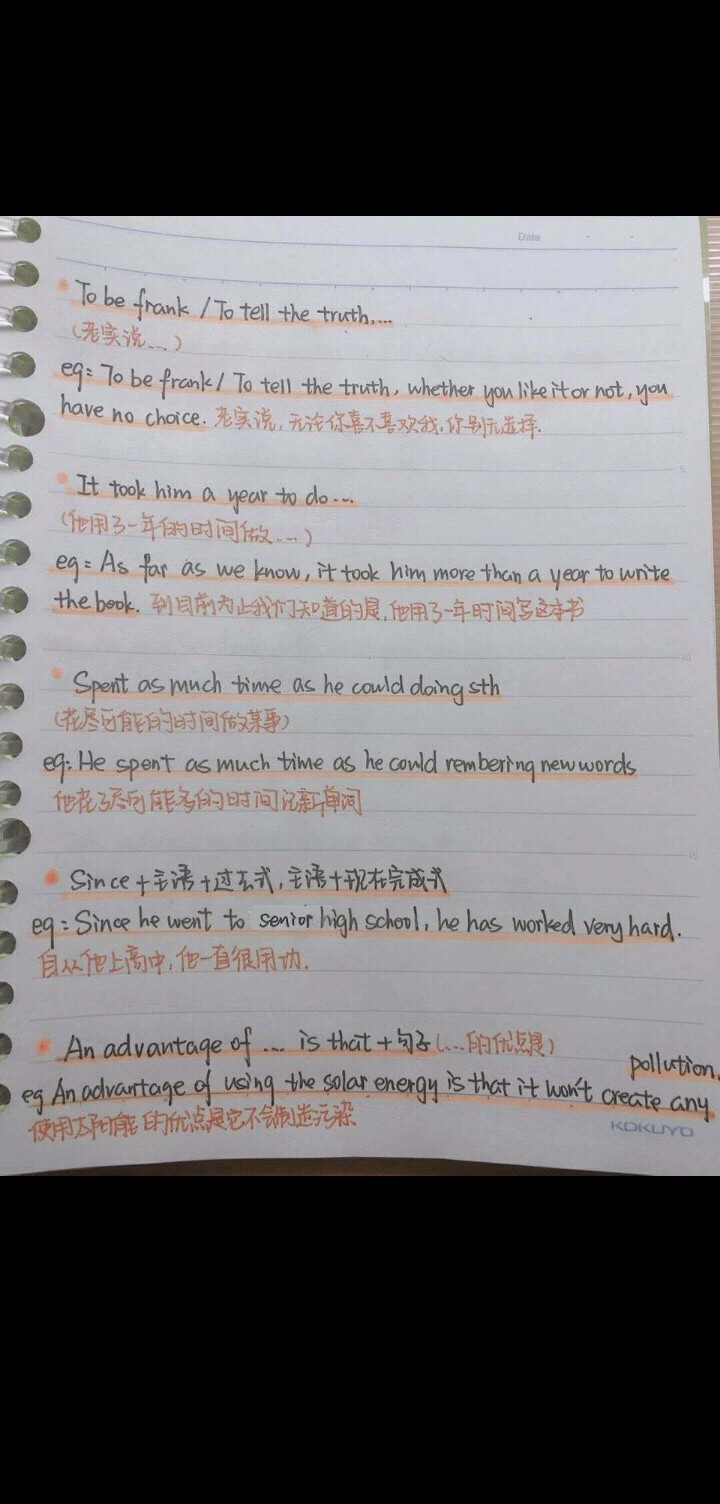 Date
To be frank / To tell the truth....
(老实说...)
eg: To be frank / To tell the truth, whether you like it or not, you
have no choice. 老实说, 无论你喜不喜欢我, 你别无选择.
It took him a year to do...
(他用了一年的时间做...)
eg: As far as we know, it took him more than a year to write
the book. 到目前为止我们知道的是, 他用了一年时间写这本书
Spent as much time as he could doing sth
(花尽可能的时间做某事)
eg: He spent as much time as he could rembering new words
他花了尽可能多的时间记新单词
Since + 主语 + 过去式, 主语 + 现在完成式
eg: Since he went to senior high school, he has worked very hard.
自从他上高中, 他一直很用功.
An advantage of ... is that + 句子 (...的优点是)
eg An advantage of using the solar energy is that it won't create any pollution.
使用太阳能的优点是它不会制造污染
KOKUYO